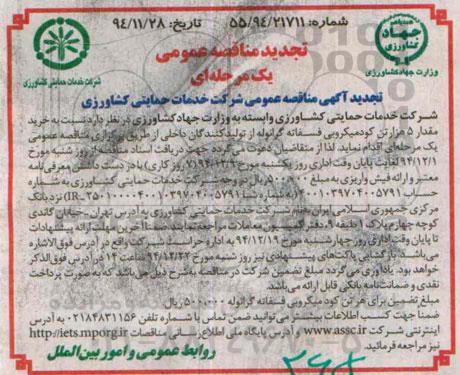 شماره: ۵۵/۹۴/۲۱۷۱۱ تاریخ: ۹۴/۱۱/۲۸
جهاد
کشاورزی
وزارت جهاد کشاورزی
شرکت خدمات حمایتی کشاورزی
تجدید مناقصه عمومی
یک مرحله‌ای
تجدید آگهی مناقصه عمومی شرکت خدمات حمایتی کشاورزی
شرکت خدمات حمایتی کشاورزی وابسته به وزارت جهاد کشاورزی در نظر دارد نسبت به خرید
مقدار ۵ هزار تن کود میکروبی فسفاته گرانوله از تولیدکنندگان داخلی از طریق برگزاری مناقصه عمومی
یک مرحله‌ای اقدام نماید. لذا از متقاضیان دعوت می‌گردد جهت دریافت اسناد مناقصه از روز شنبه مورخ
۹۴/۱۲/۱ لغایت پایان وقت اداری روز یکشنبه مورخ ۹۴/۱۲/۹ (۷ روز کاری) با در دست داشتن معرفی‌نامه
معتبر و ارائه فیش واریزی به مبلغ ۵۰۰،۰۰۰ ریال در وجه شرکت خدمات حمایتی کشاورزی به شماره
حساب ۴۰۰۱۰۳۹۷۰۴۰۰۵۷۹۱ (به شماره شبا IR_۲۵۰۱۰۰۰۰۴۰۰۱۰۳۹۷۰۴۰۰۵۷۹۱) نزد بانک
مرکزی جمهوری اسلامی ایران به‌نام شرکت خدمات حمایتی کشاورزی به آدرس تهران - خیابان گاندی
کوچه چهارم پلاک ۱ طبقه ۹، دفتر کمیسیون معاملات مراجعه نمایند. ضمنا آخرین مهلت ارائه پیشنهادات
تا پایان وقت اداری روز چهارشنبه مورخ ۹۴/۱۲/۱۹ به اداره حراست شرکت واقع در آدرس فوق‌الاشاره
می‌باشد. بازگشایی پاکت‌های پیشنهادی نیز روز شنبه مورخ ۹۴/۱۲/۲۲ ساعت ۱۴ در آدرس فوق‌الذکر
خواهد بود. یادآوری می‌گردد مبلغ تضمین شرکت در مناقصه به‌شرح ذیل می‌باشد که به صورت پرداخت
نقدی و ضمانت‌نامه بانکی قابل ارائه می‌باشد.
مبلغ تضمین برای هر تن کود میکروبی فسفاته گرانوله ۵۰۰،۰۰۰ ریال
ضمنا جهت کسب اطلاعات بیشتر می‌توانید ضمن تماس با شماره تلفن ۰۲۱۸۴۸۳۱۱۵۶ به آدرس
اینترنتی شرکت www.assc.ir و آدرس پایگاه ملی اطلاع‌رسانی مناقصات http://iets.mporg.ir
نیز مراجعه فرمائید.
روابط عمومی و امور بین‌الملل